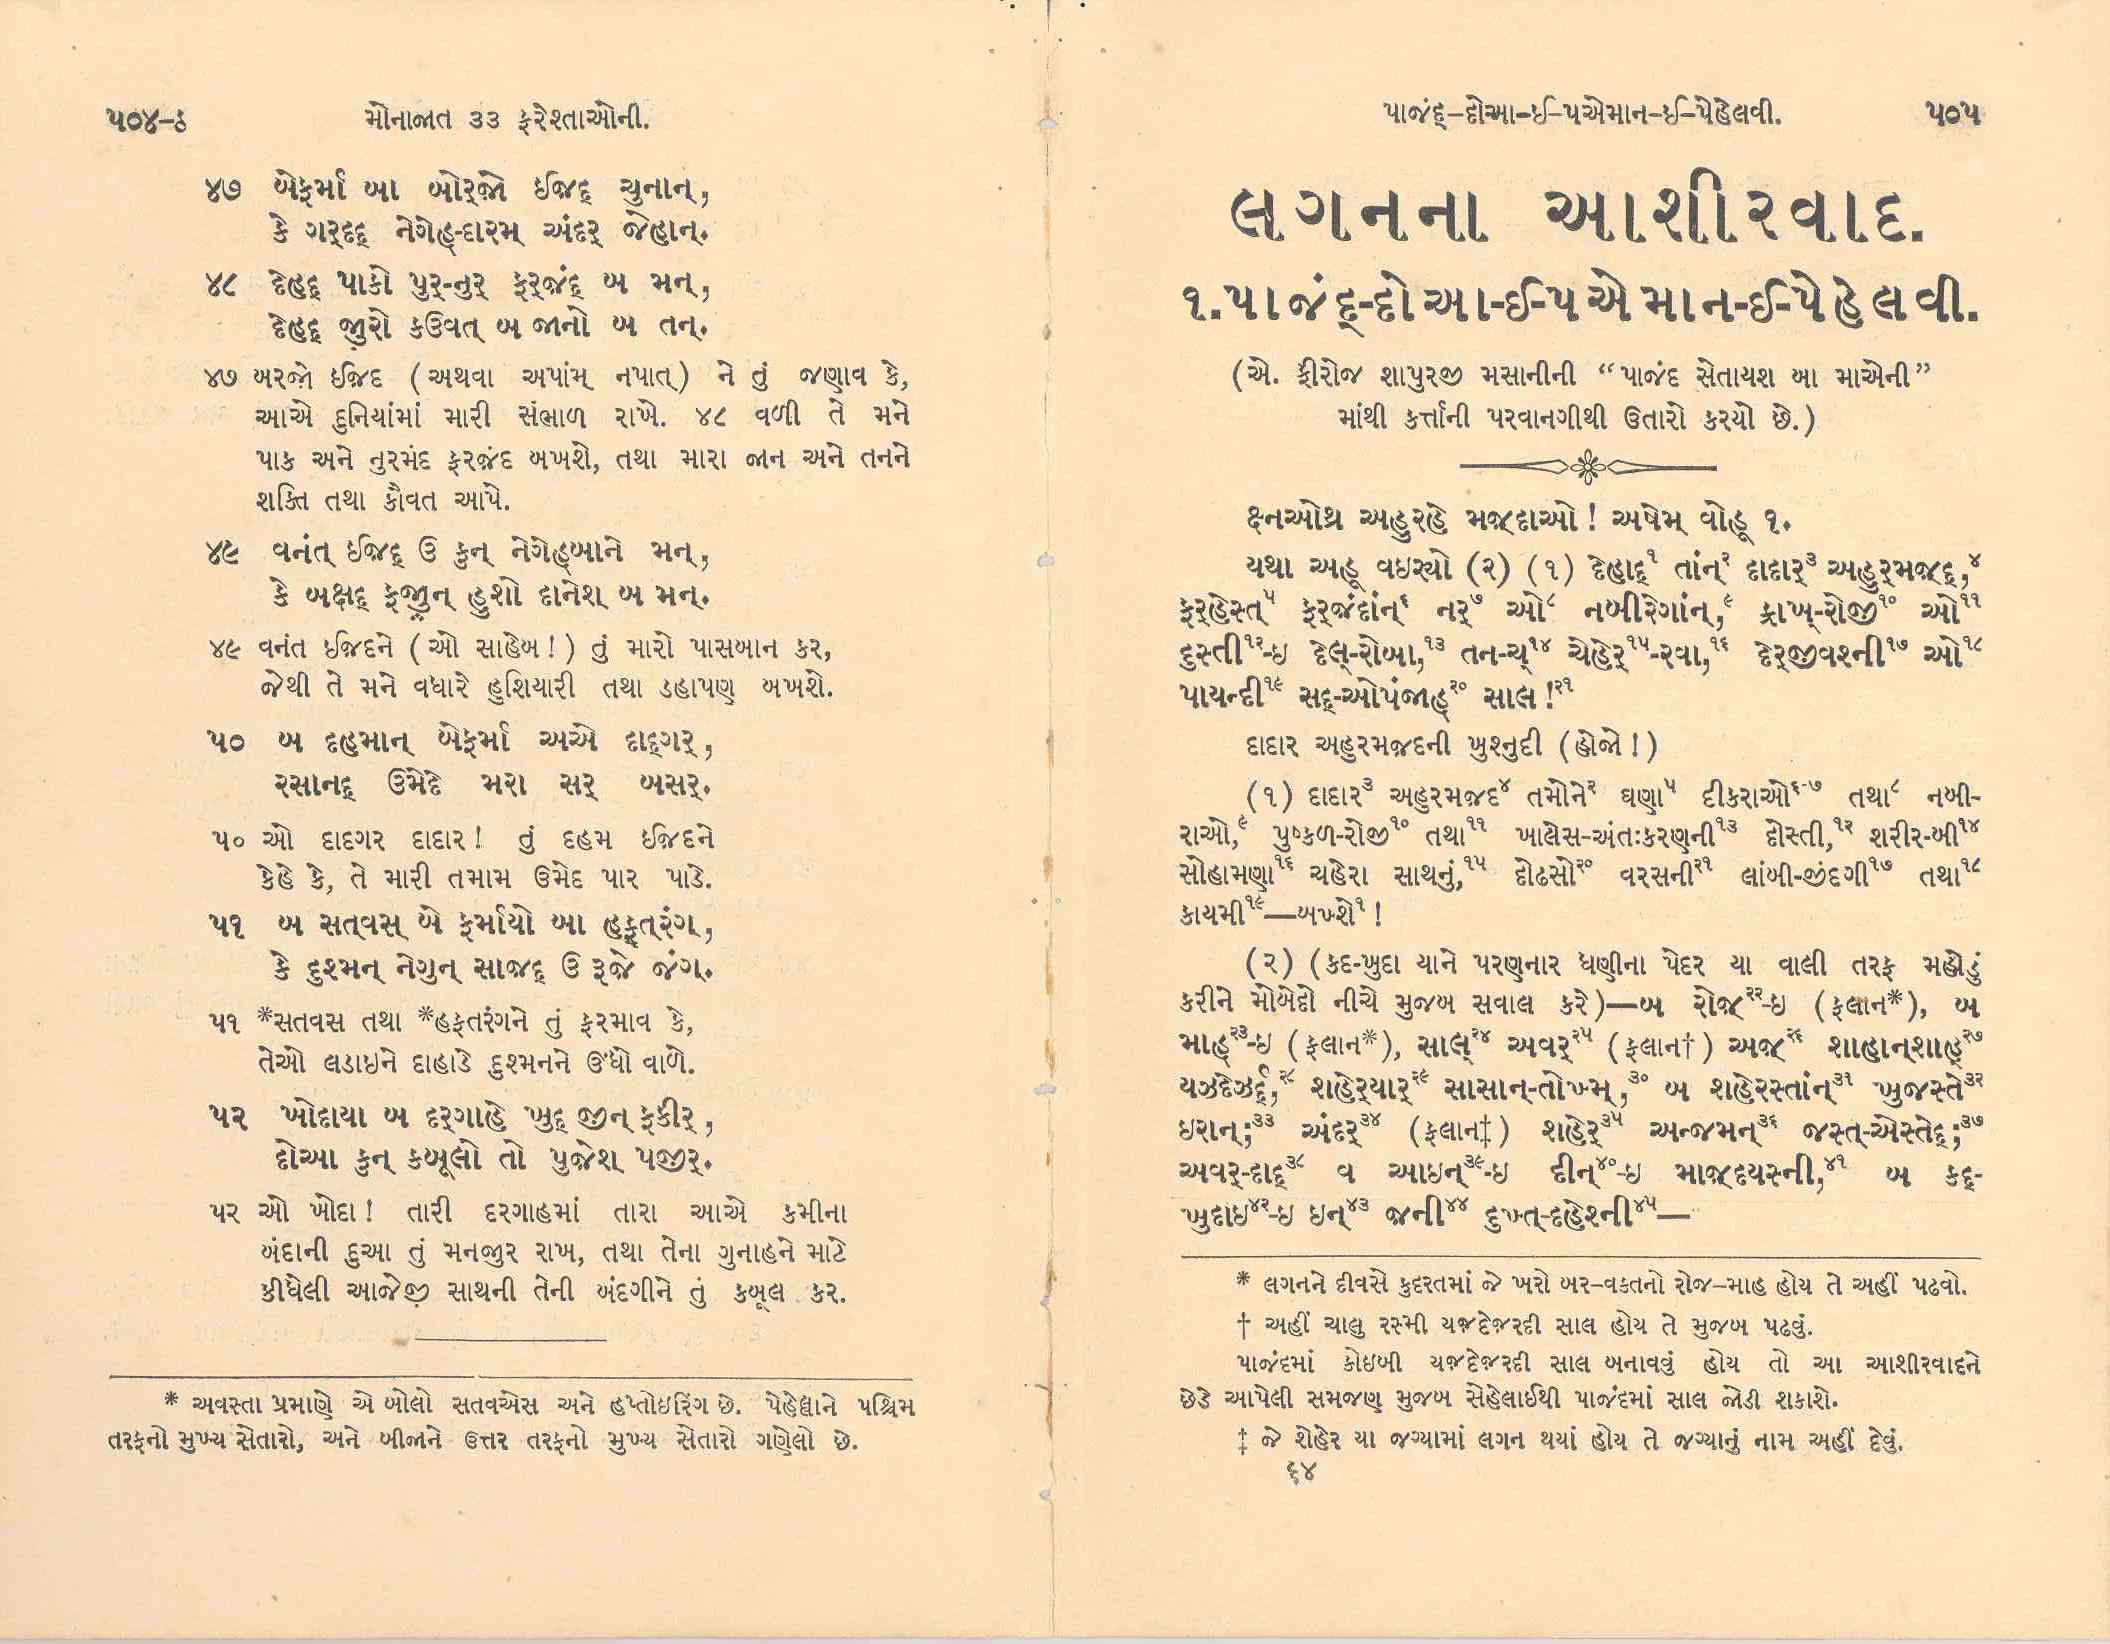 ૫૦૪-ઠ
મોનાજાત ૩૩ ફરેશ્તાઓની.
૪૭ બેફર્માં બા બોર્જો ઈજદ્ ચુનાન્,
કે ગર્દદ્ નેગેહ્-દારમ્ અંદર્ જેહાન્.
૪૮ દેહદ્ પાકો પુર્-નુર્ ફર્જંદ્ બ મન્,
દેહદ્ જીરો કઉવત્ બ જાનો બ તન્.
૪૭ બરજો ઈજિદ (અથવા અપાંમ્ નપાત્) ને તું જણાવ કે,
આએ દુનિયાંમાં મારી સંભાળ રાખે. ૪૮ વળી તે મને
પાક અને નુરમંદ ફરજંદ બખશે, તથા મારા જાન અને તનને
શક્તિ તથા કૌવત આપે.
૪૯ વનંત્ ઈજિદ્ ઉ કુન્ નેગેહ્બાને મન્,
કે બક્ષદ્ ફજીન્ હુશો દાનેશ્ બ મન્.
૪૯ વનંત ઈજિદને (ઓ સાહેબ!) તું મારો પાસબાન કર,
જેથી તે મને વધારે હુશિયારી તથા ડહાપણ બખશે.
૫૦ બ દહમાન્ બેફર્માં અએ દાદ્ગર્,
રસાનદ્ ઉમેદે મરા સર્ બસર્.
૫૦ ઓ દાદગર દાદાર! તું દહમ ઈજિદને
કેહે કે, તે મારી તમામ ઉમેદ પાર પાડે.
૫૧ બ સત્વસ્ બે ફર્માયો બા હફ્ત્રંગ્,
કે દુશ્મન્ નેગુન્ સાજદ્ ઉ રૂજે જંગ્.
૫૧ *સતવસ તથા *હફતરંગને તું ફરમાવ કે,
તેઓ લડાઇને દાહાડે દુશ્મનને ઉંધો વાળે.
૫૨ ખોદાયા બ દર્ગાહે ખુદ્ જીન્ ફકીર્,
દોઆ કુન્ કબૂલો તો પુજેશ્ પજીર્.
૫૨ ઓ ખોદા! તારી દરગાહમાં તારા આએ કમીના
બંદાની દુઆ તું મનજીર રાખ, તથા તેના ગુનાહને માટે
કીધેલી આજેજી સાથની તેની બંદગીને તું કબૂલ કર.
* અવસ્તા પ્રમાણે એ બોલો સતવએસ અને હપ્તોઇરિંગ છે. પેહેલ્લાને પશ્ચિમ
તરફનો મુખ્ય સેતારો, અને બીજાને ઉત્તર તરફનો મુખ્ય સેતારો ગણેલો છે.
પાજંદ્-દોઆ-ઈ-પએમાન-ઈ-પેહેલવી.
૫૦૫
લગનના આશીરવાદ.
૧. પાજંદ્-દોઆ-ઈ-પએમાન-ઈ-પેહેલવી.
(એ. ફીરોજ શાપુરજી મસાનીની “પાજંદ સેતાયશ બા માએની”
માંથી કર્ત્તાની પરવાનગીથી ઉતારો કરયો છે.)
ક્ષ્નઓથ્ર અહુરહે મજ્દાઓ! અષેમ્ વોહૂ ૧.
યથા અહૂ વઇર્યો (૨) (૧) દેહાદ્૧ તાંન્૨ દાદાર્૩ અહુર્મજ્દ્,૪
ફર્હેસ્ત્૫ ફર્જંદાંન્૬ નર્૭ ઓ૮ નબીરેગાંન્,૯ ફ્રાખ્-રોજી૧૦ ઓ૧૧
દુસ્તી૧૨-ઇ દેલ્-રોબા,૧૩ તન-ચ્૧૪ ચેહેર્૧૫-રવા,૧૬ દેર્જીવશ્ની૧૭ ઓ૧૮
પાયન્દી૧૯ સદ્-ઓપંજાહ્૨૦ સાલ!૨૧
દાદાર અહુરમજદની ખુશ્નુદી (હોજો!)
(૧) દાદાર૩ અહુરમજદ૪ તમોને૨ ઘણા૫ દીકરાઓ૬-૭ તથા૮ નબી-
રાઓ,૯ પુષ્કળ-રોજી૧૦ તથા૧૧ ખાલેસ-અંતઃકરણની૧૩ દોસ્તી,૧૨ શરીર-બી૧૪
સોહામણા૧૬ ચહેરા સાથનું,૧૫ દોઢસો૨૦ વરસની૨૧ લાંબી-જીંદગી૧૭ તથા૧૮
કાયમી૧૯—બખ્શે૧!
(૨) (કદ-ખુદા યાને પરણનાર ધણીના પેદર યા વાલી તરફ મ્હોડું
કરીને મોબેદો નીચે મુજબ સવાલ કરે)—બ રોજ્૨૨-ઇ (ફલાન*), બ
માહ્૨૩-ઇ (ફલાન*), સાલ્૨૪ અવર્૨૫ (ફલાન†) અજ્૨૬ શાહાન્શાહ્૨૭
યઝ્દેઝર્દ્,૨૮ શહેર્યાર્૨૯ સાસાન્-તોખ્મ્,૩૦ બ શહેરસ્તાંન્૩૧ ખુજસ્તે૩૨
ઇરાન્;૩૩ અંદર્૩૪ (ફલાન‡) શહેર્૩૫ અન્જમન્૩૬ જસ્ત્-એસ્તેદ્;૩૭
અવર્-દાદ્૩૮ વ આઇન્૩૯-ઇ દીન્૪૦-ઇ માજ્દયસ્ની,૪૧ બ કદ્-
ખુદાઇ૪૨-ઇ ઇન્૪૩ જની૪૪ દુખ્ત્-દહેશ્ની૪૫—
* લગનને દીવસે કુદરતમાં જે ખરો બર-વક્તનો રોજ-માહ હોય તે અહીં પઢવો.
† અહીં ચાલુ રસ્મી યજદેજરદી સાલ હોય તે મુજબ પઢવું.
પાજંદમાં કોઇબી યજદેજરદી સાલ બનાવવું હોય તો આ આશીરવાદને
છેડે આપેલી સમજણ મુજબ સેહેલાઈથી પાજંદમાં સાલ જોડી શકાશે.
‡ જે શેહેર યા જગ્યામાં લગન થયાં હોય તે જગ્યાનું નામ અહીં દેવું.
૬૪